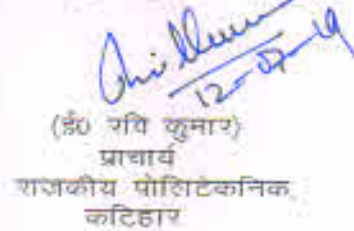 12-07-19
(ई0 रवि कुमार)
प्राचार्य
राजकीय पोलिटेकनिक,
कटिहार